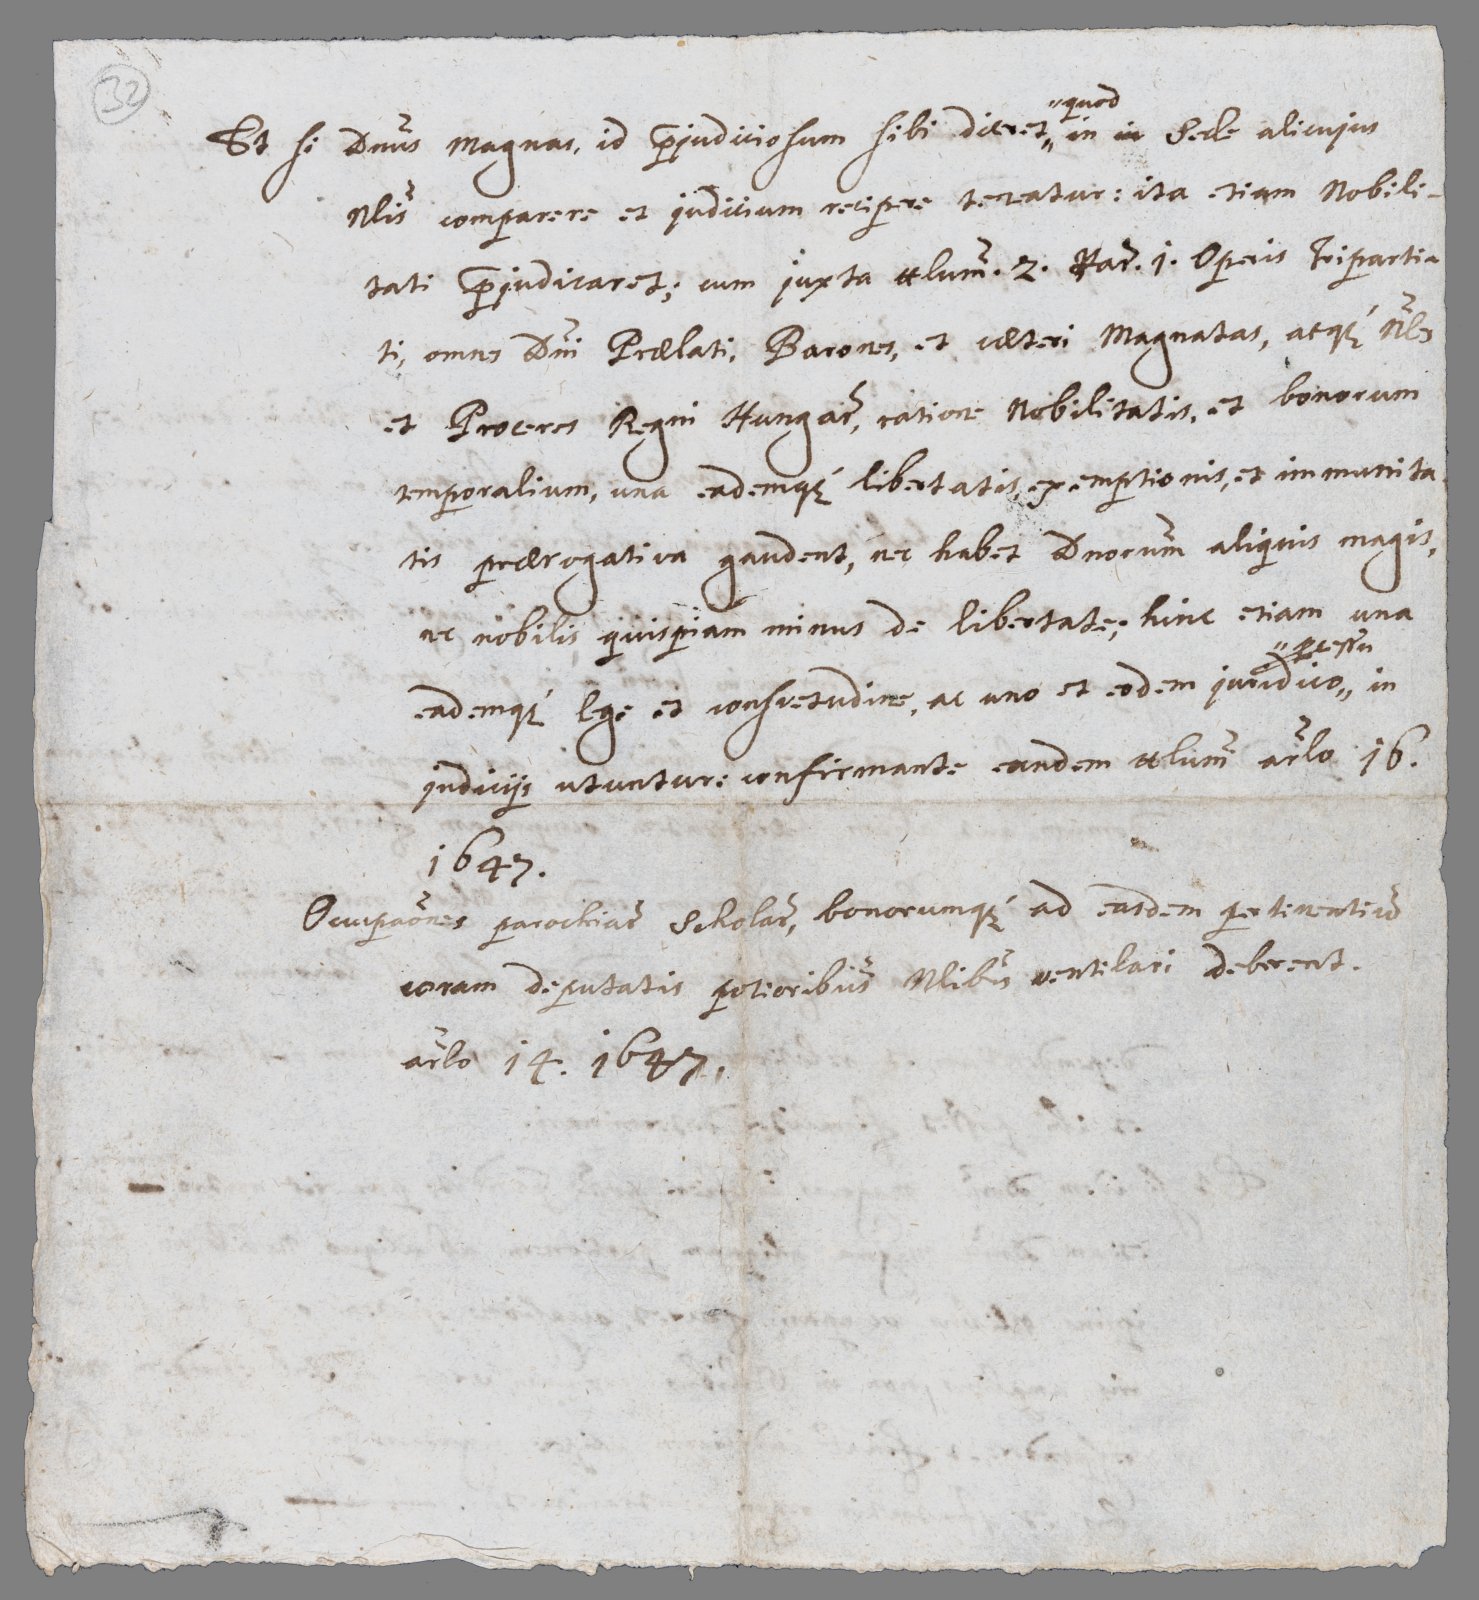 32
Et si Dnus Magnas, id p̄judiciosum sibi diceret „quod in in Sede alicujus
Nlis comparere et judicium recipere teneatur: ita etiam Nobili-
tati p̄judicaret; cum juxta tlum. 2. Par. 1. Operis Triparti-
ti, omnes Dni Prælati, Barones, et cæteri Magnatas, atq́ Nles
et Proceres Regni Hungar, ratione Nobilitatis, et bonorum
temporalium, una eademq́ libertatis, exemptionis, et immunita
tis prærogativa gaudent, nec habet Dnorum aliquis magis,
nec nobilis quispiam minus de libertate; hinc etiam una
eademq́ lege et consvetudine, ac uno et eodem juridico „pcessu in
judicijs utuntur: confirmante eundem tlum arlo 16.
1647.
Occupaones parochiar Scholar, bonorumq́ ad easdem pertinentiu
coram deputatis potioribus Nlibus ventilari deberent.
arlo 14. 1647.